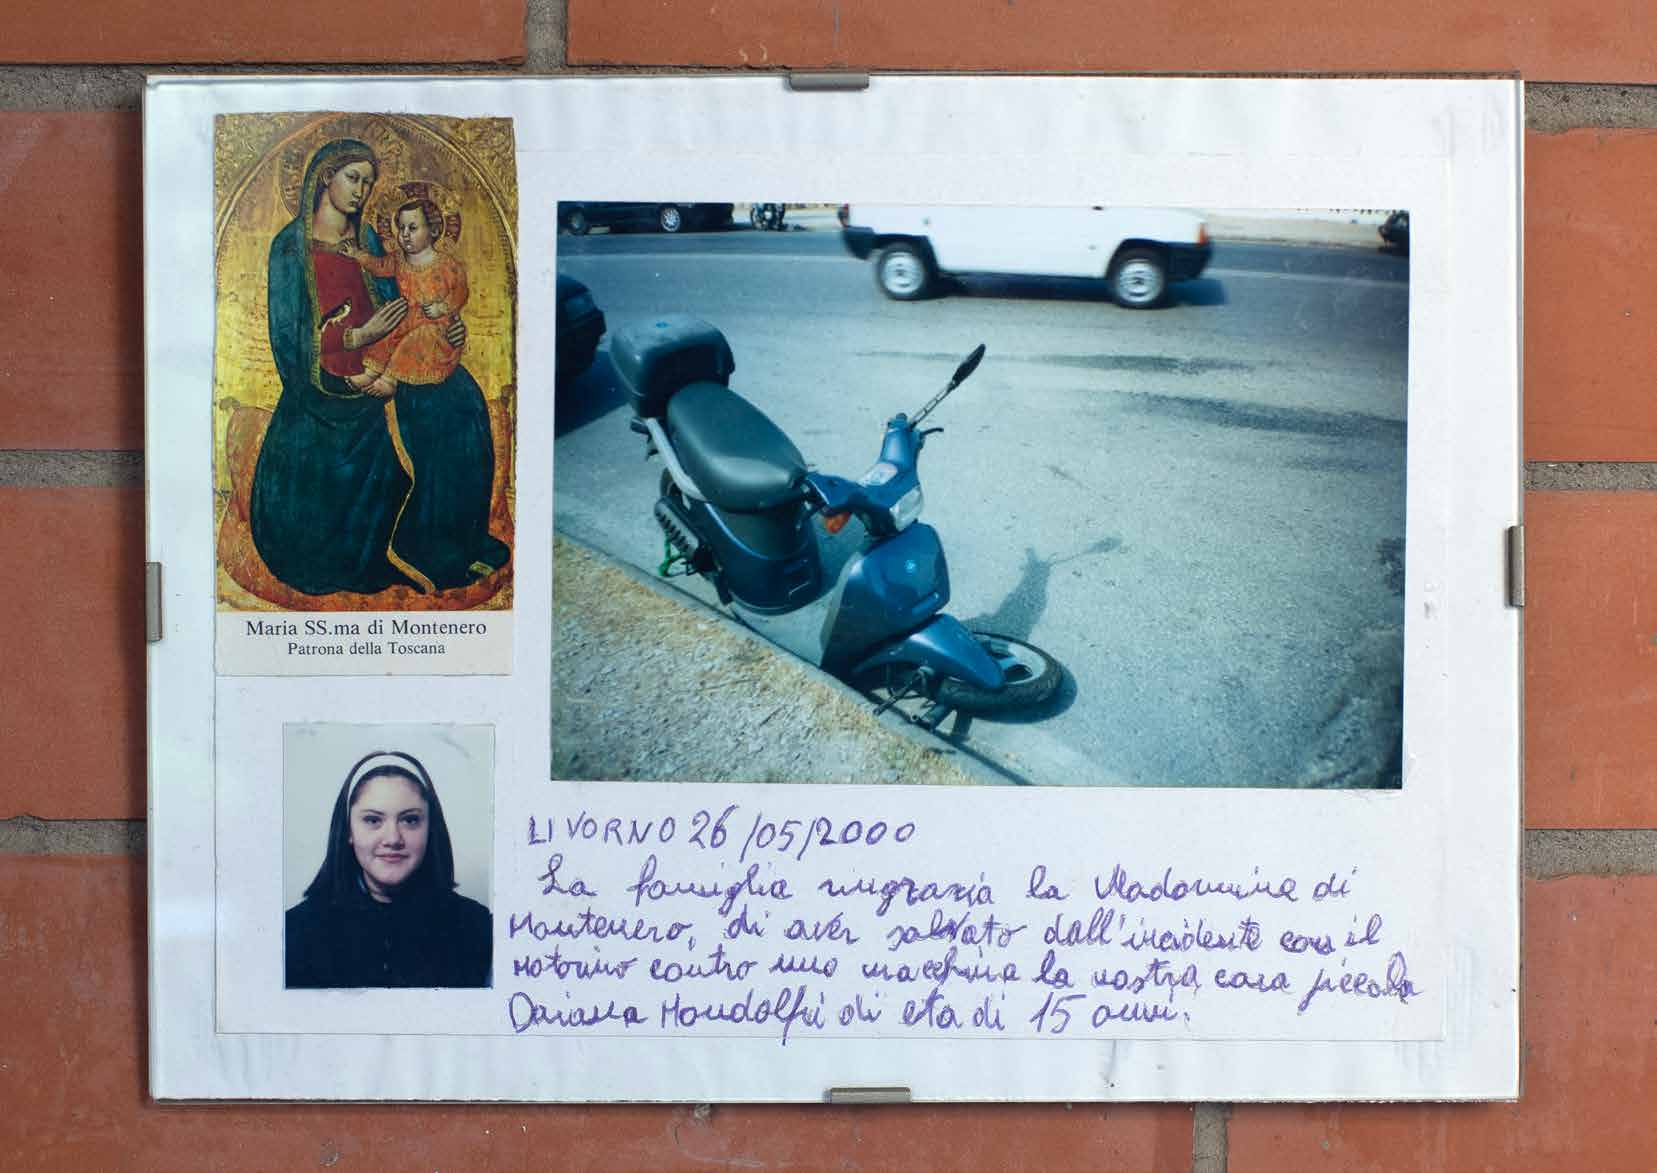 Maria SS.ma di Montenero
Patrona della Toscana
LIVORNO 26/05/2000
La famiglia ringrazia la Madonnina di
Montenero, di aver salvato dall'incidente con il
motorino contro una macchina la nostra cara piccola
Daiana Mondolfi di eta di 15 anni.